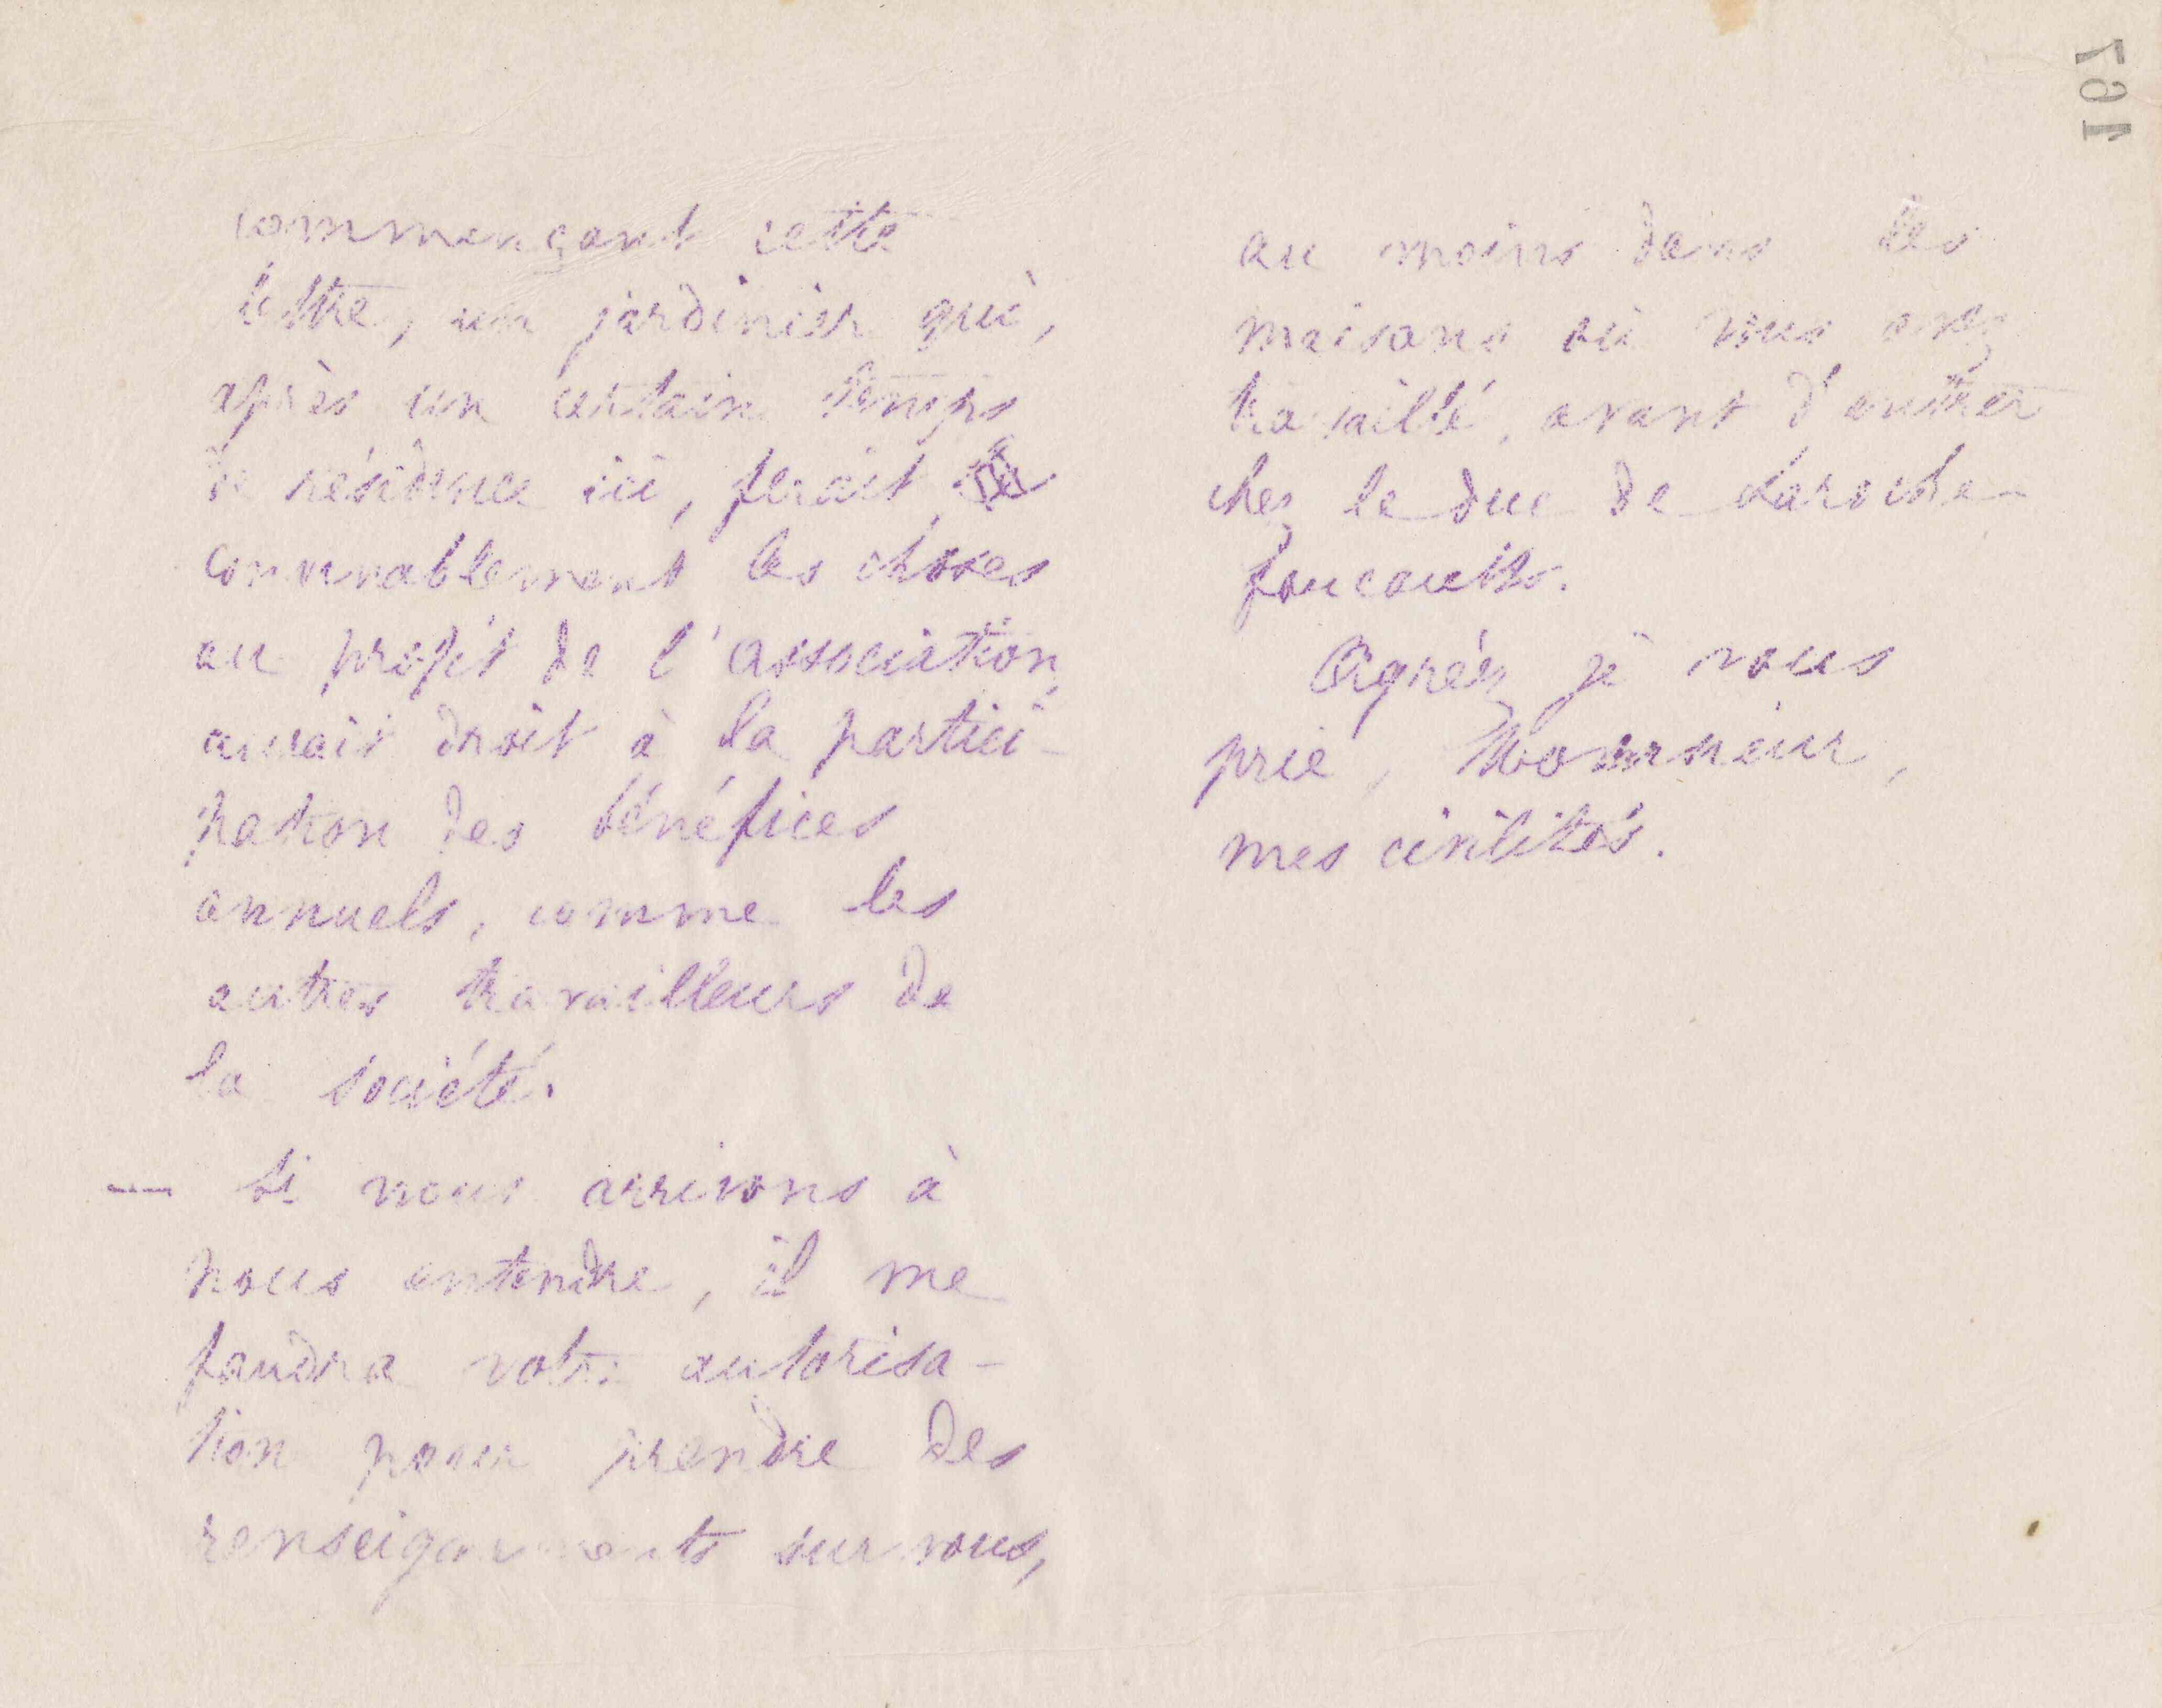 commençant cette
lettre, un jardinier qui,
après un certain temps
de résidence ici, ferait
convenablement les choses
au profit de l'association,
aurait droit à la partici-
pation des bénéfices
annuels, comme les
autres travailleurs de
la société.
— Si nous arrivons à
nous entendre, il me
faudra votre autorisa-
tion pour prendre des
renseignements sur vous,
au moins dans les
maisons où vous avez
travaillé, avant d'entrer
chez le duc de Laroche-
foucault.
Agréez je vous
prie, Monsieur,
mes civilités.
167